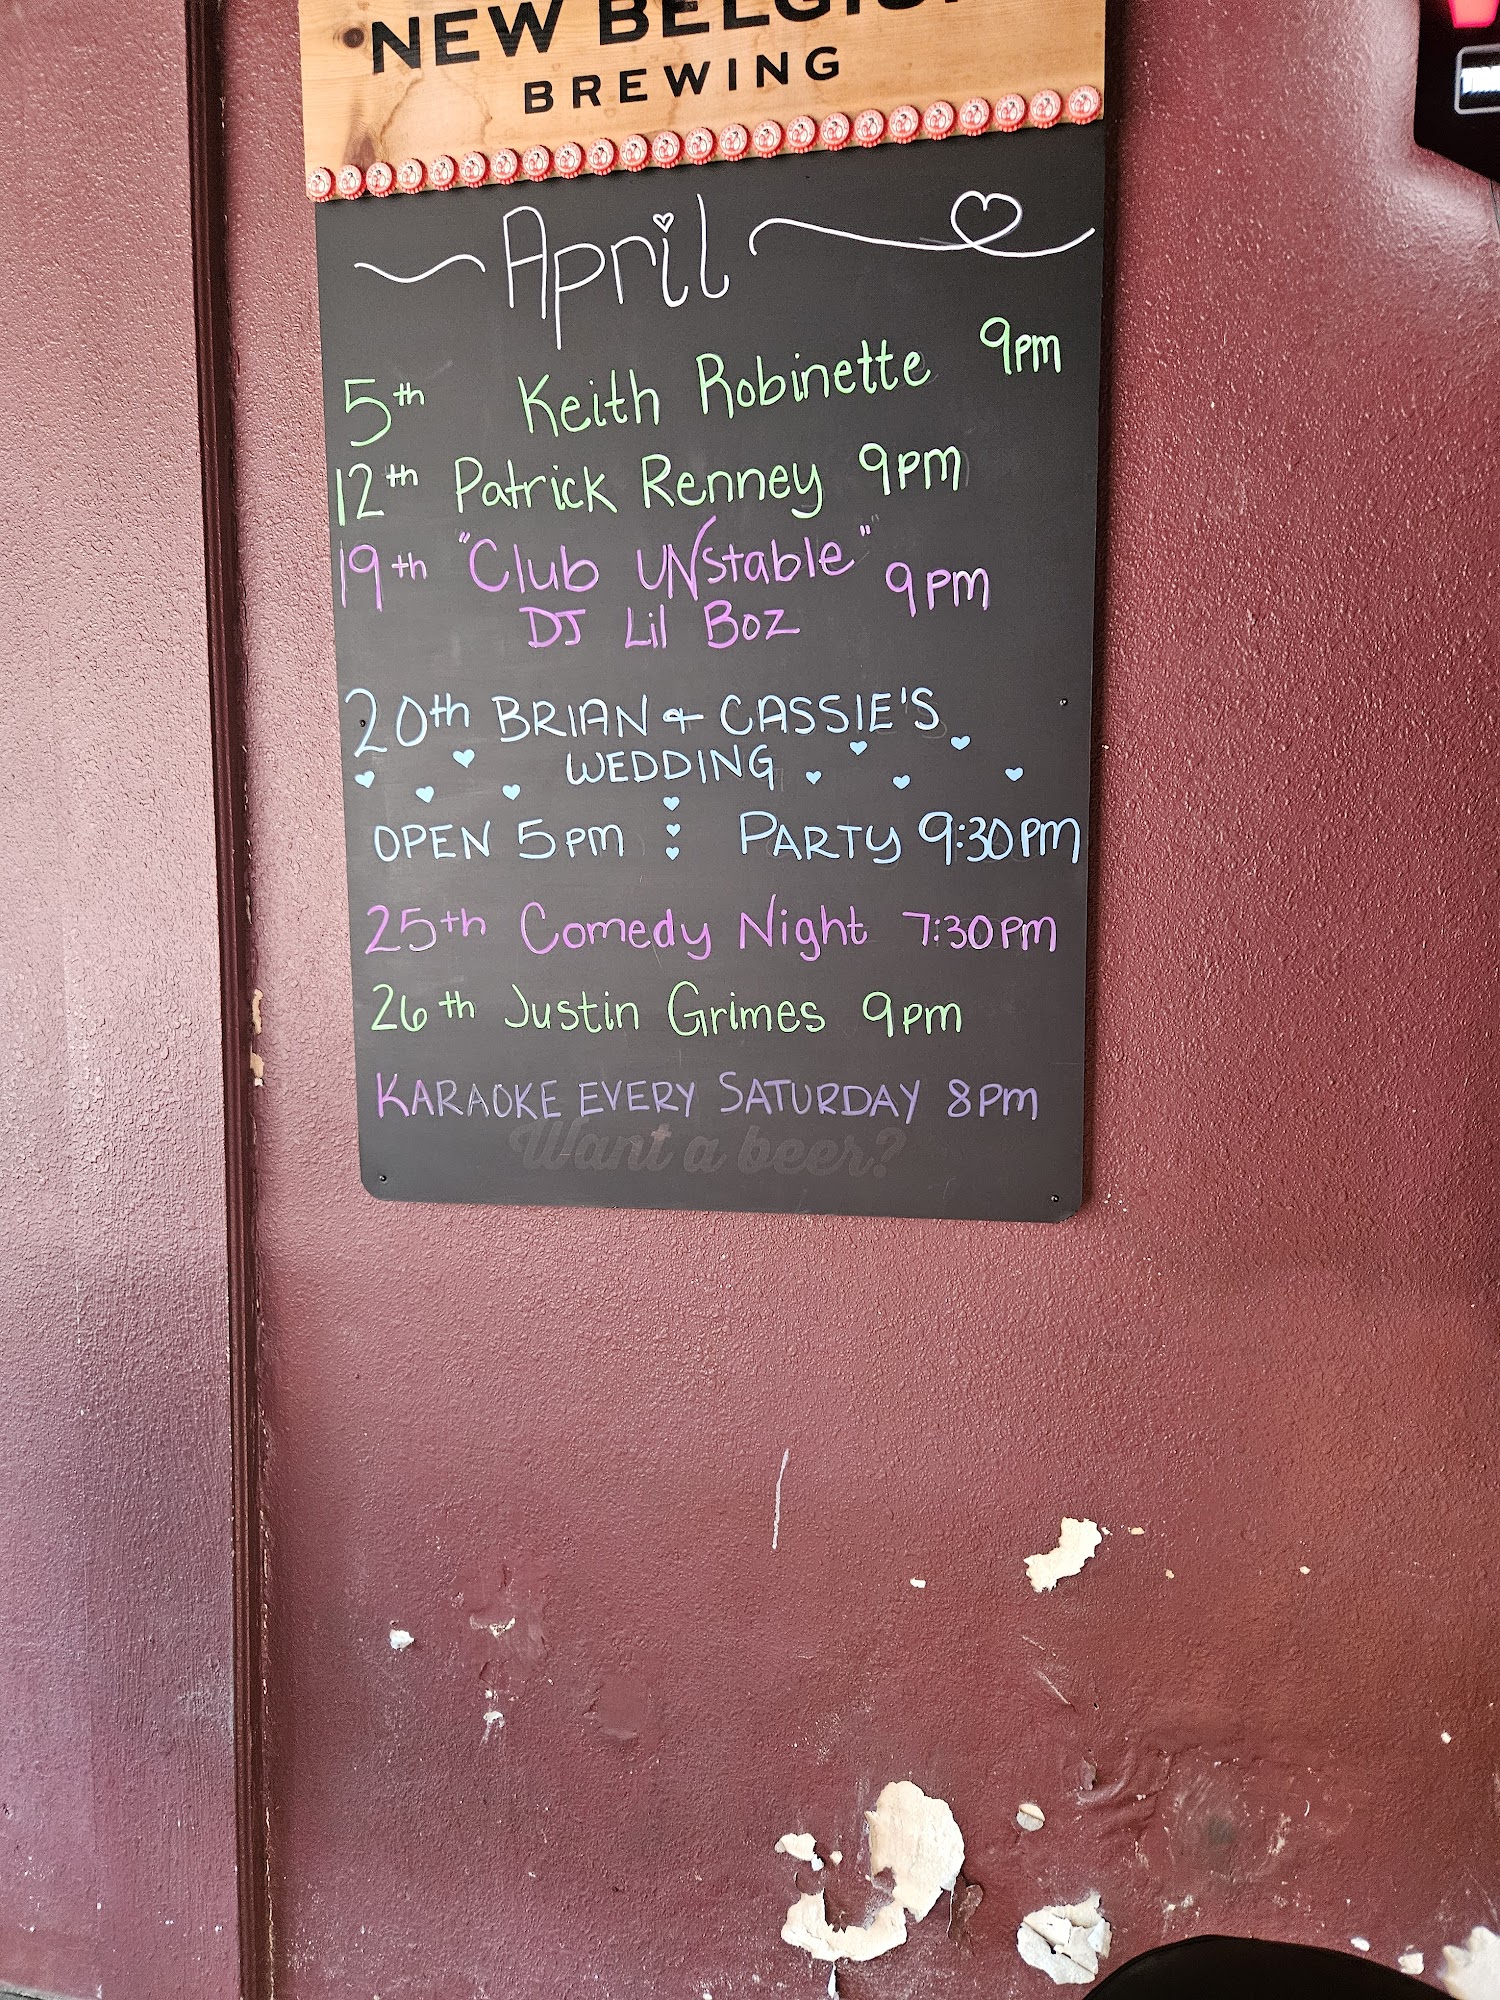 NEW BELGIUM
BREWING
April
5th Keith Robinette 9pm
12th Patrick Renney 9pm
19th "Club UNstable" 9pm
DJ Lil Boz
20th BRIAN + CASSIE'S
WEDDING
OPEN 5pm PARTY 9:30pm
25th Comedy Night 7:30pm
26th Justin Grimes 9pm
KARAOKE EVERY SATURDAY 8pm
Want a beer?